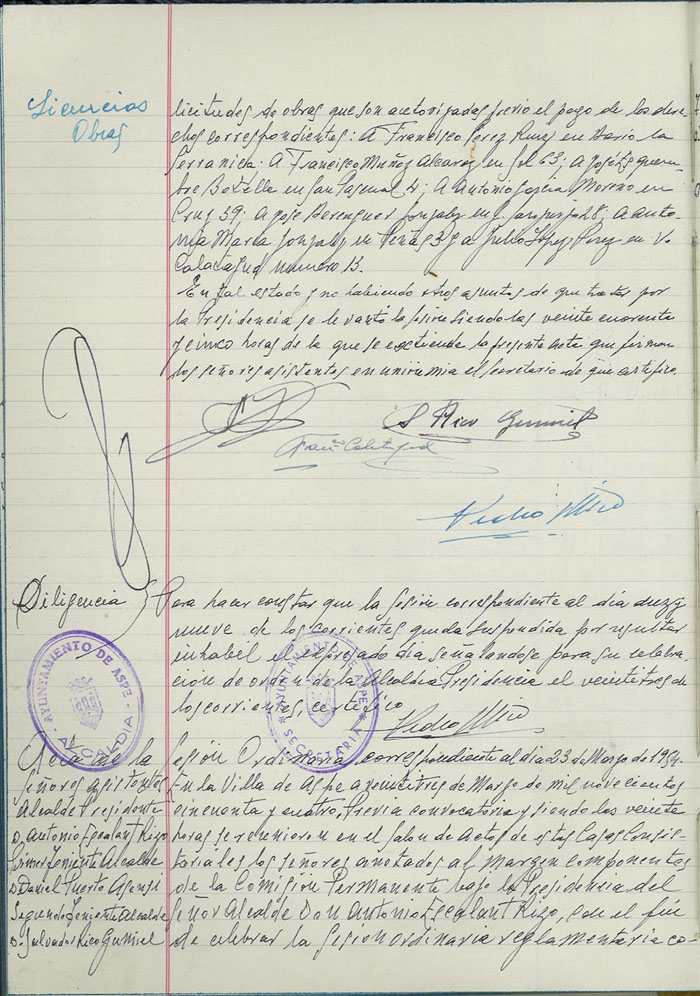 Licencias
Obras
licitudes de obras que son autorizadas previo el pago de los dere-
chos correspondientes: A Francisco Perez Ruiz en Dario la
Serranica. A Francisco Muñoz Alcaraz en Sol 63; A José
Botella en San Pascual 4; A Antonio Garcia Moreno en
Cruz 39; A Jose Berenguer Gonzalez en 28; A Anto-
nia Maria Gonzalez en Peñas 3 y a Julio López Perez en V.
Calatayud numero 13.
En tal estado y no habiendo otros asuntos de que tratar por
la Presidencia se levantó la sesión siendo las veinte cuarenta
y cinco horas de la que se extiende la presente acta que firman
los señores asistentes en union mia el secretario de que certifico.
S Rico Gumiel
Franco Calatayud
Pedro Mico
Diligencia
Para hacer constar que la sesión correspondiente al dia diez y
nueve de los corrientes queda suspendida por resultar
inhabil el expresado dia señalandose para su celebra-
cion de orden de la Alcaldia Presidencia el veintitres de
los corrientes, certifico
Pedro Mico
AYUNTAMIENTO DE ASPE
ALCALDIA
AYUNTAMIENTO DE ASPE
SECRETARIA
Acta de la Sesión Ordinaria correspondiente al dia 23 de Marzo de 1954.
Señores asistentes
Alcalde Presidente
D. Antonio Escalant Rizo
Primer Teniente Alcalde
D. Daniel Puerto Asensi
Segundo Teniente Alcalde
D. Salvador Rico Gumiel
En la Villa de Aspe a veintitres de Marzo de mil novecientos
cincuenta y cuatro, previa convocatoria y siendo las veinte
horas se reunieron en el Salon de Actos de estas Casas Consis-
toriales los señores anotados al margen componentes
de la Comisión Permanente bajo la Presidencia del
Señor Alcalde Don Antonio Escalant Rizo, con el fin
de celebrar la sesión ordinaria reglamentaria co-